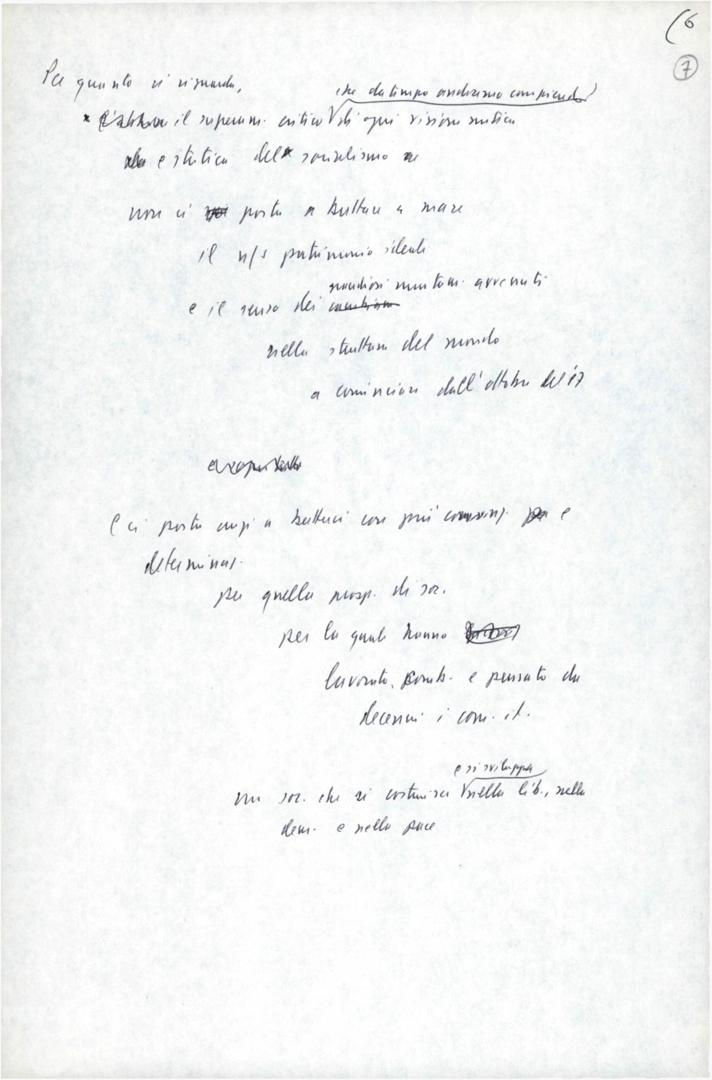 (6
7
Per quanto ci riguarda,
che da tempo andiamo compiendo
il superam. critico di ogni visione mitica
e statica del socialismo
non ci porta a buttare a mare
il n/s patrimonio ideale
grandiosi mutam. avvenuti
e il senso dei
nella struttura del mondo
a cominciare dall'ottobre del '17
e ci porta anzi a batterci con più convinz. e
determinaz.
per quella prosp. di soc.
per la quale hanno
lavorato, comb. e pensato da
decenni i com. it.
e si sviluppa
una soc. che si costruisca nella lib., nella
dem. e nella pace